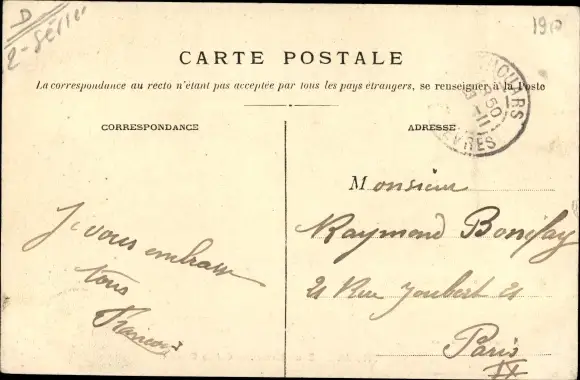 D
2-Sèvres
1910
CARTE POSTALE
La correspondance au recto n'étant pas acceptée par tous les pays étrangers, se renseigner à la Poste
THOUARS
50
-11
SÈVRES
CORRESPONDANCE
ADRESSE
Je vous embrasse
tous
François
Monsieur
Raymond Bonifay
21 Rue Joubert 21
Paris
IX